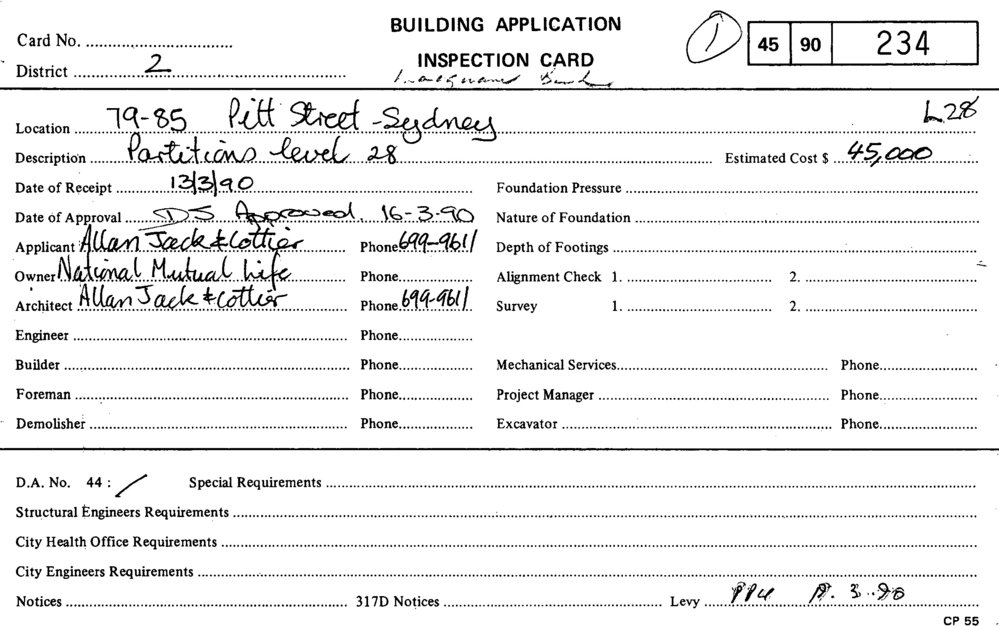 BUILDING APPLICATION
INSPECTION CARD
Card No.
District 2
1
45 90 234
L28
Location 79-85 Pitt Street - Sydney
Description Partitions level 28 Estimated Cost $ 45,000
Date of Receipt 13/3/90 Foundation Pressure
Date of Approval DS Approved. 16-3-90 Nature of Foundation
Applicant Allan Jack & Cottier Phone 699-9611 Depth of Footings
Owner National Mutual Life Phone Alignment Check 1. 2.
Architect Allan Jack & Cottier Phone 699-9611 Survey 1. 2.
Engineer Phone
Builder Phone Mechanical Services Phone
Foreman Phone Project Manager Phone
Demolisher Phone Excavator Phone
D.A. No. 44 : / Special Requirements
Structural Engineers Requirements
City Health Office Requirements
City Engineers Requirements
Notices 317D Notices Levy
CP 55